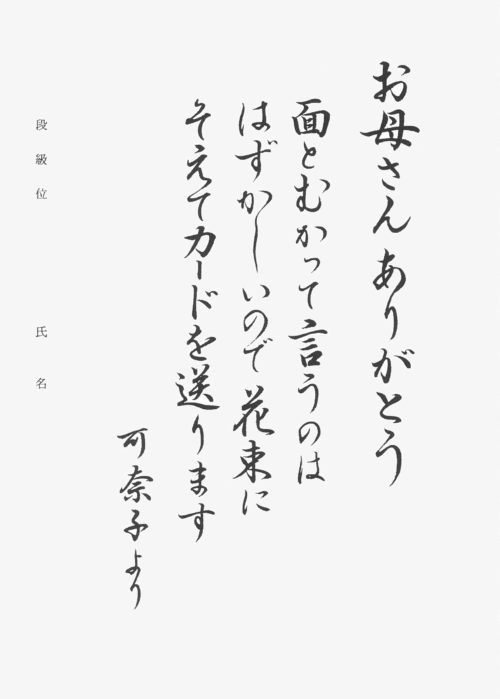 お母さん ありがとう
面とむかって言うのは
はずかしいので花束に
そえてカードを送ります
可奈子より
段級位 氏名